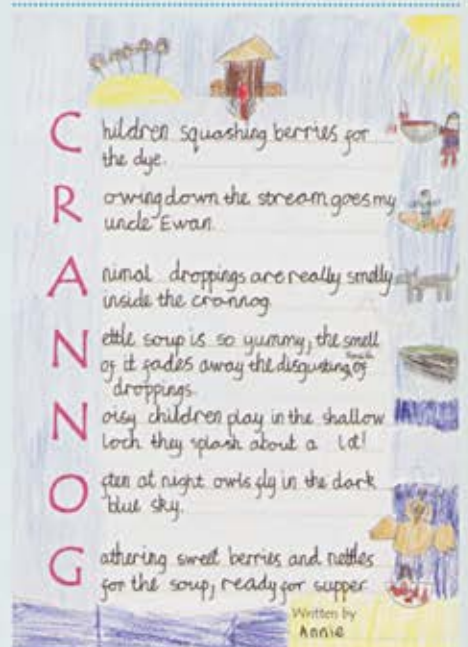 Children squashing berries for
the dye.
Rowing down the stream goes my
uncle Ewan.
Animal droppings are really smelly
inside the crannog
Nettle soup is so yummy, the smell
of it fades away the disgusting smell of
droppings.
Noisy children play in the shallow
loch they splash about a lot!
Often at night owls fly in the dark
blue sky.
Gathering sweet berries and nettles
for the soup, ready for supper.
Written by
Annie